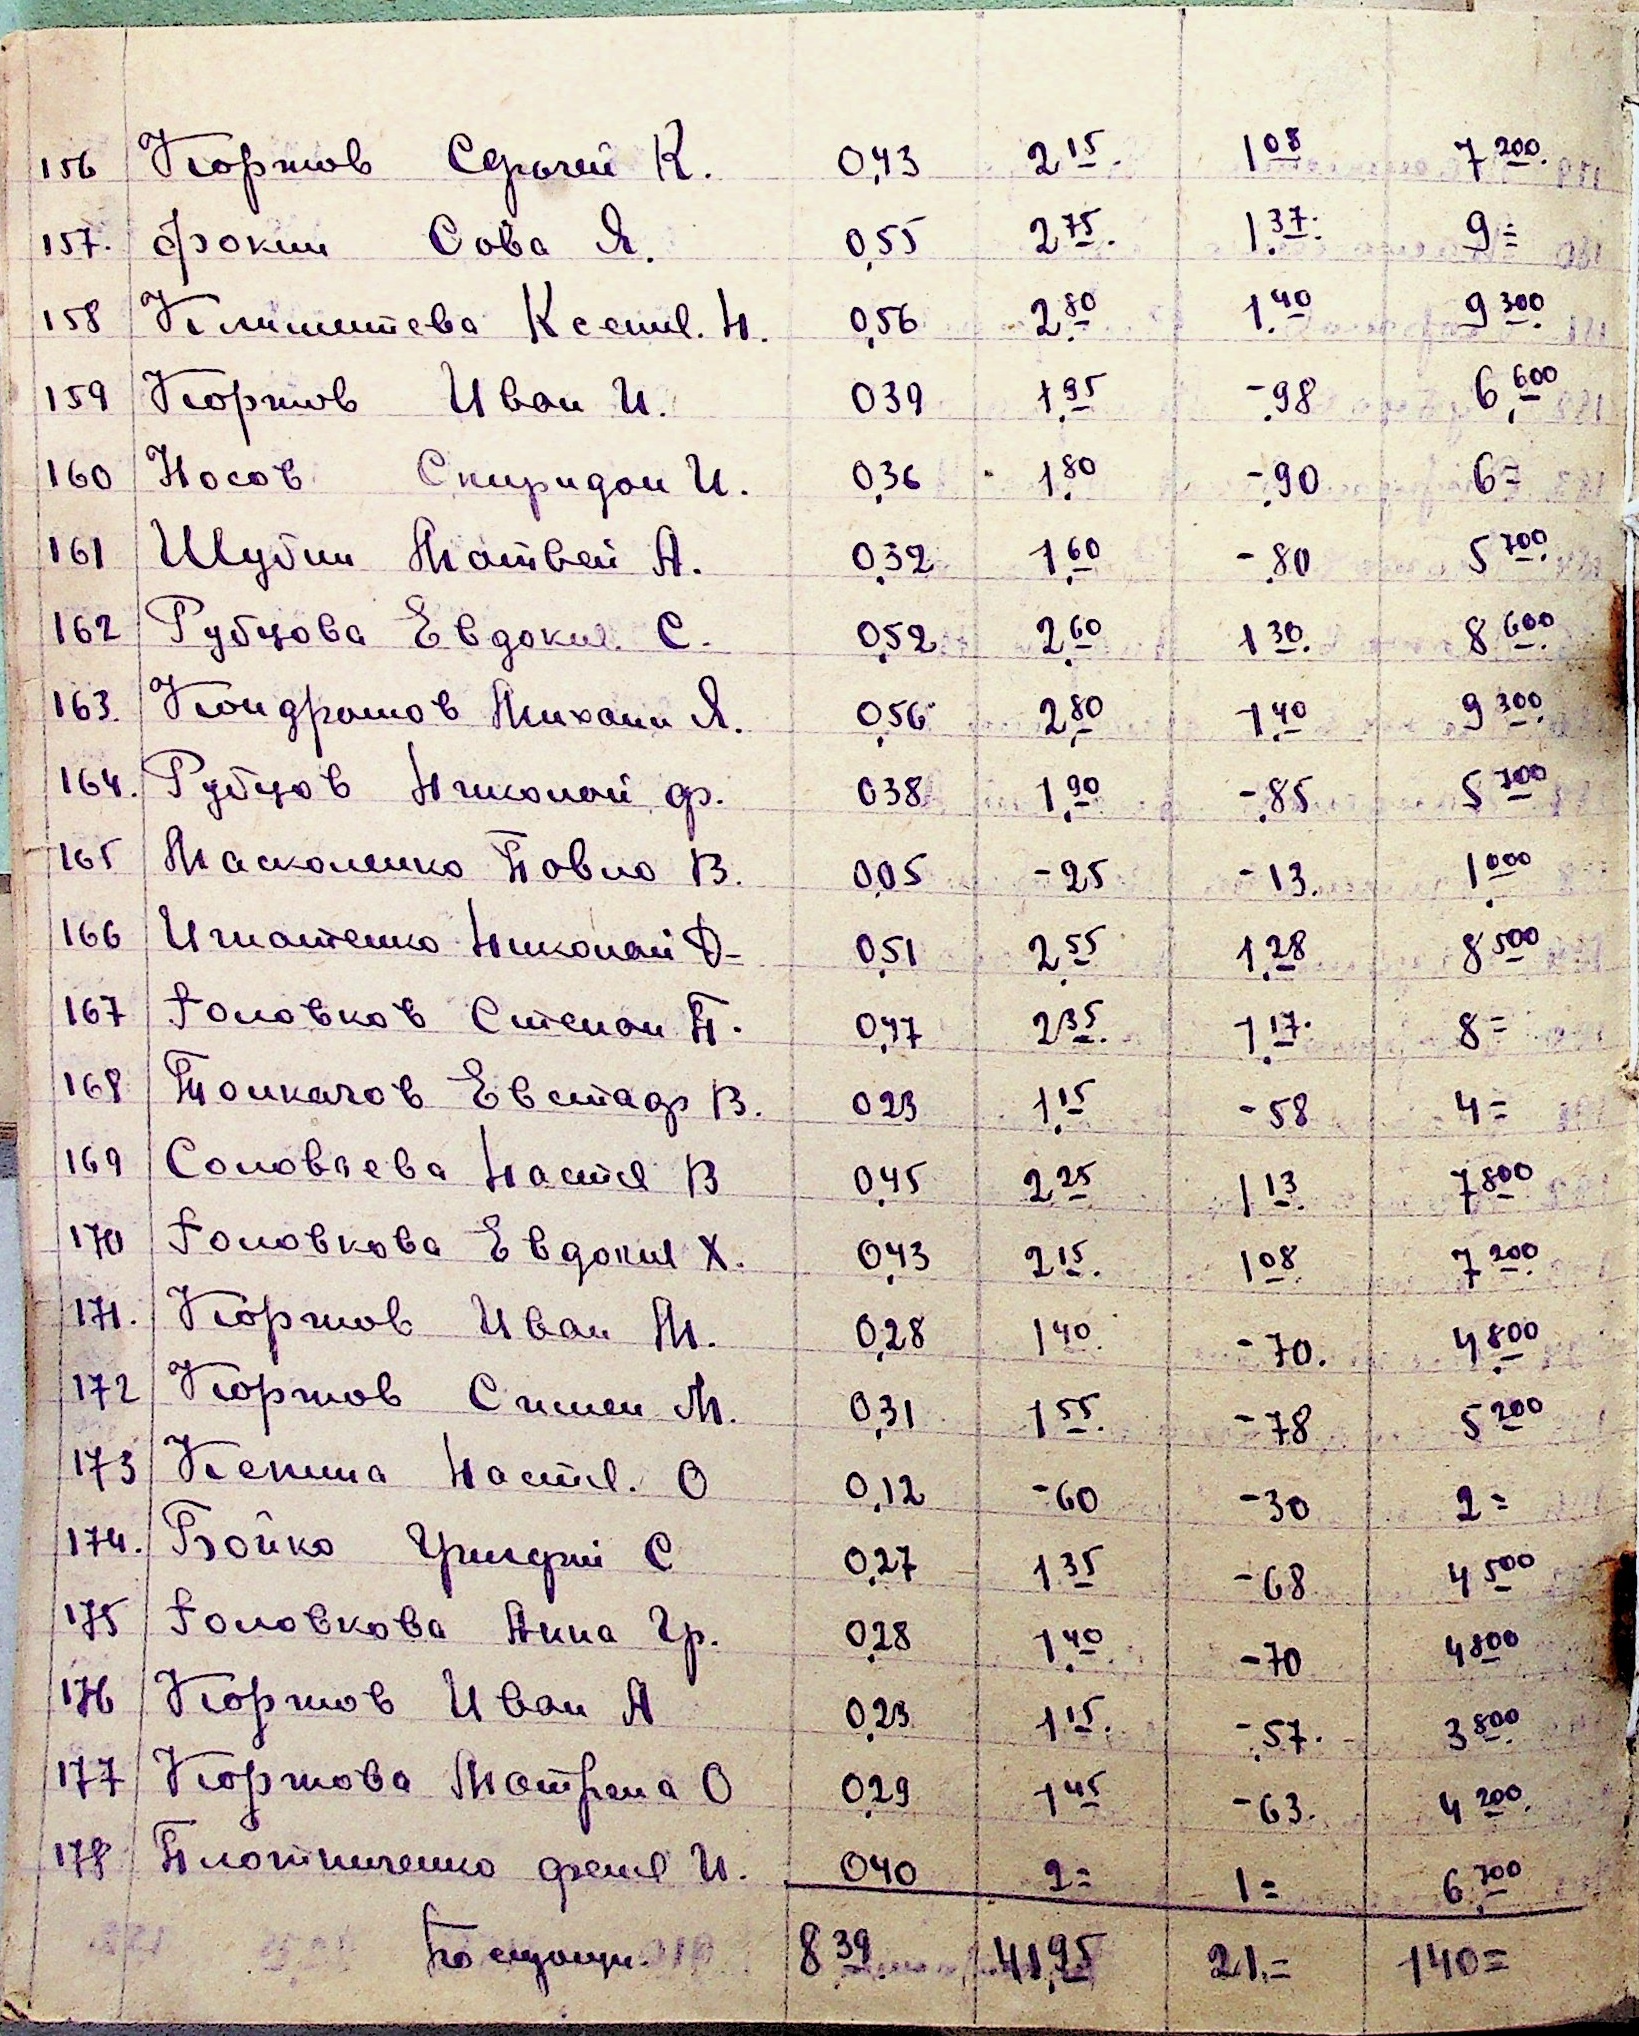 156 Коржов Сергей К. 0,43 2 15. 1 08 7 200.
157. Фокин Сова Я. 0,55 2 75. 1 37. 9=
158 Климитева Ксения. Н. 0,56 2 80 1 40 9 300
159 Коржов Иван И. 039 1 95 -98 6 600
160 Носов Спиридон И. 0,36 1 80 -90 6=
161 Шубин Матвей А. 0,32 1 60 -80 5 700
162 Рубцова Евдокия. С. 0,52 2 60 1 30. 8 600
163. Кондрашов Михаил Я. 0,56 2 80 1 40 9 300
164. Рубцов Николай Ф. 038 1 90 -85 5 700
165 Маколенко Павло В. 0,05 -25 -13. 1 000
166 Игнатенко Николай Д- 0,51 2 55 1 28 8 500
167 Головков Степан П. 0,47 2 35. 1 17. 8=
168 Толкачов Евстаф В. 023 1 15 -58 4=
169 Соловьева Настя В 0,45 2 25 1 13. 7 800
170 Головкова Евдокия Х. 0,43 2 15. 1 08 7 200
171. Коржов Иван М. 0,28 1 40. -70. 4 800
172 Коржов Симен М. 0,31 1 55. -78 5 200
173 Кекина Настя. О 0,12 -60 -30 2=
174. Бойко С 0,27 1 35 -68 4 500
175 Головкова Анна Гр. 0,28 1 40. -70 4 800
176 Коржов Иван А 0,23 1 15. -57. 3 800
177 Коржова Матрена О 0,29 1 45 -63. 4 200.
178 Плотниченко Феня И. 040 2= 1= 6 700
8 39. 41,95 21.= 140=